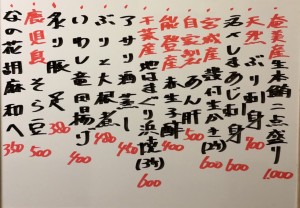 奄美産生本鮪二点盛り 1,000
天然ぶり刺身
活〆しまあじ刺身
宮城産殻付生かき 600
自家製あん肝 500
能登産赤生子酢 400
千葉産地はまぐり浜焼(3ケ) 600
アサリ酒蒸し
ぶりと大根煮
いわし竜田揚げ 400
炙り豚足 380
鹿児島そら豆 500
なの花胡麻和へ 350